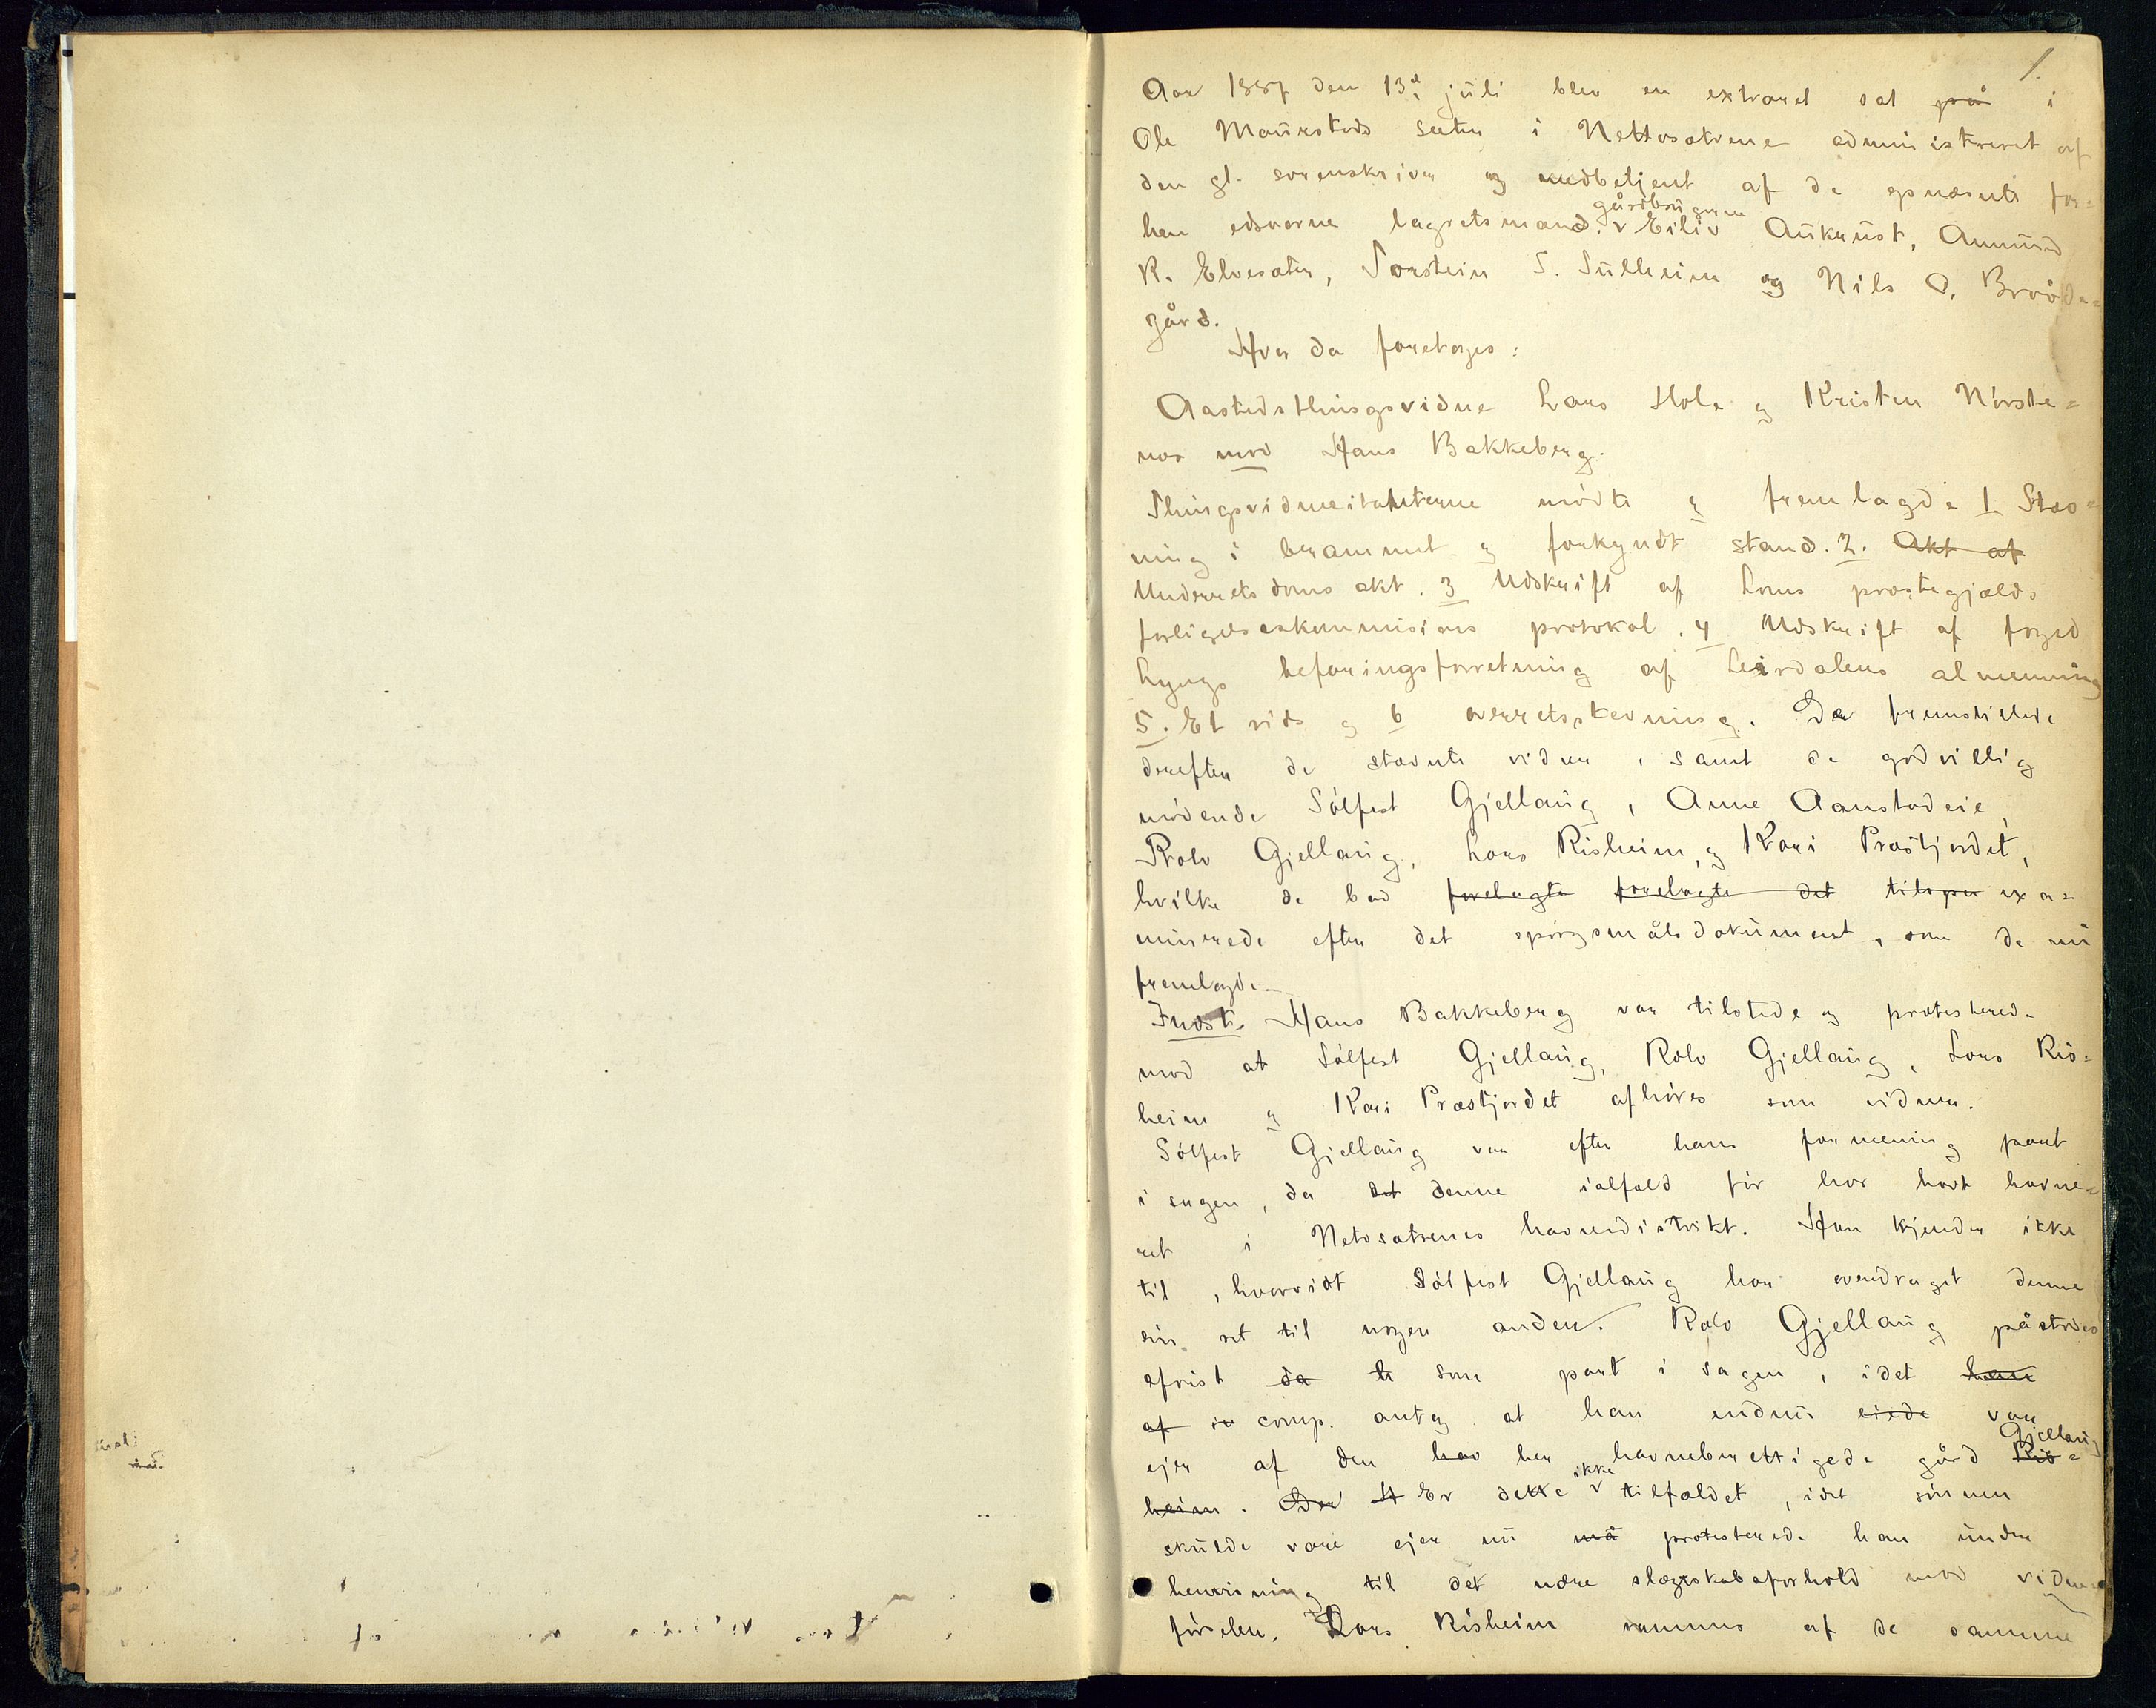 1.
Aar 1887 den 13de juli blev en extraret sat på i
Ole Maurstads sæter i Nettosætrene administreret af
den gl. sorenskriver og medbetjent af de opnævnte for-
hen edsvorne lagretsmænd. gårdbrugerne Eiliv Aukrust, Amund
K. Elvesæter, Torstein T. Sulheim og Nils O. Brøde-
gård.
Hvor da foretoges:
Aastedsthingsvidne Lars Hole og Kristen Nørste-
nes mod Hans Bakkeberg.
Thingsvidneitanterne mødte og fremlagde 1 Stæv-
ning i berammet og forkyndt stand. 2. Akt af
Underrets doms akt. 3 Udskrift af Loms præstegjælds
forligelseskommisions protokol. 4 Udskrift af foged
Lyngs befaringsforretning af Leirdalens almenning
5. Et vids og 6 overretsstevning. De fremstillede
derefter de stævnte vidner, samt de godvillig
mødende Sølfest Gjellaug, Anne Aanstadeie,
Rolv Gjellaug, Lars Risheim, og Kari Præstjordet,
hvilke de bad forelagte forelagte det exa-
minerede efter det spørgsmålsdokument, som de nu
fremlagde.
Indst. Hans Bakkeberg var tilstede og protesterede
mod at Sølfest Gjellaug, Rolv Gjellaug, Lars Ris-
heim og Kari Præstjordet afhøres som vidner.
Sølfest Gjellaug var efter hans formening part
i sagen, da det denne ialfald før har havt havne-
ret i Netosætrenes havnedistrikt. Han kjender ikke
til, hvorvidt Sølfest Gjellaug har overdraget denne
sin ret til nogen anden. Rolv Gjellaug påstodes
afvist da h som part i sagen, idet han
af comp. antog at han endnu eiede var
ejer af den hav her havneberettigede gård Ris- Gjellaug
heim. Er dette ikke tilfældet, idet sønnen
skulde være ejer nu må protesterede han under
henvisning til det nære slægtskabsforhold mod vidne-
førselen. Lars Risheim rammes af de samme